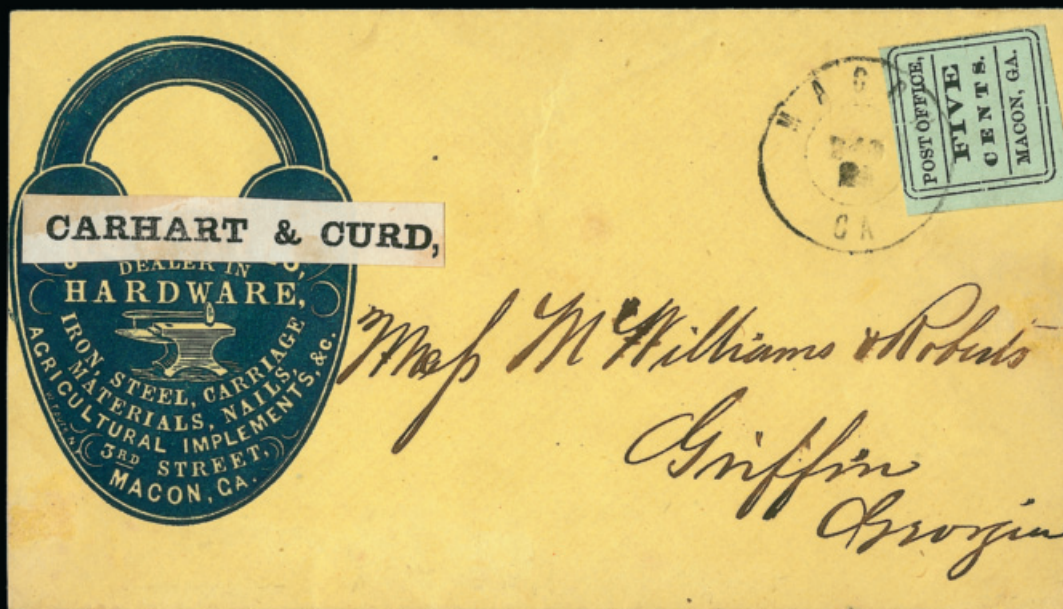 CARHART & CURD,
DEALER IN
HARDWARE,
IRON, STEEL, CARRIAGE
MATERIALS, NAILS,
AGRICULTURAL IMPLEMENTS, &c.
3RD STREET,
MACON, GA.
MACON
GA
POST OFFICE,
FIVE
CENTS.
MACON, GA.
Mess McWilliams & Roberts
Griffin
Georgia